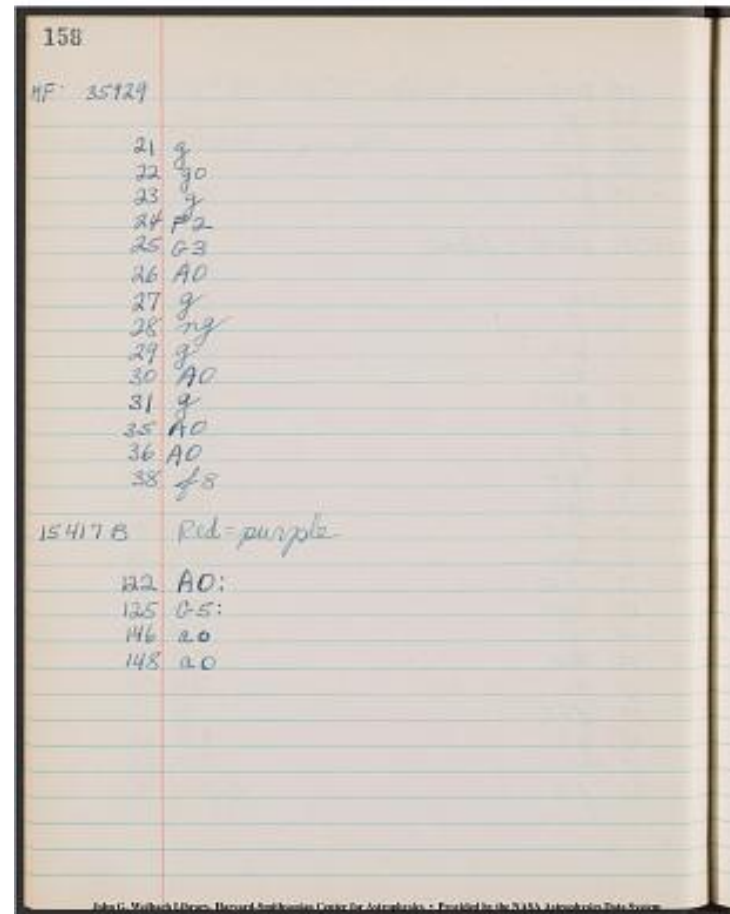 158
MF 35929
21 g
22 g0
23 g
24 F2
25 G3
26 A0
27 g
28 ng
29 g
30 A0
31 g
35 A0
36 A0
38 f8
15417 B Red=purple
122 A0:
125 G5:
146 a0
148 a0
John G. Wolbach Library, Harvard-Smithsonian Center for Astrophysics • Provided by the NASA Astrophysics Data System